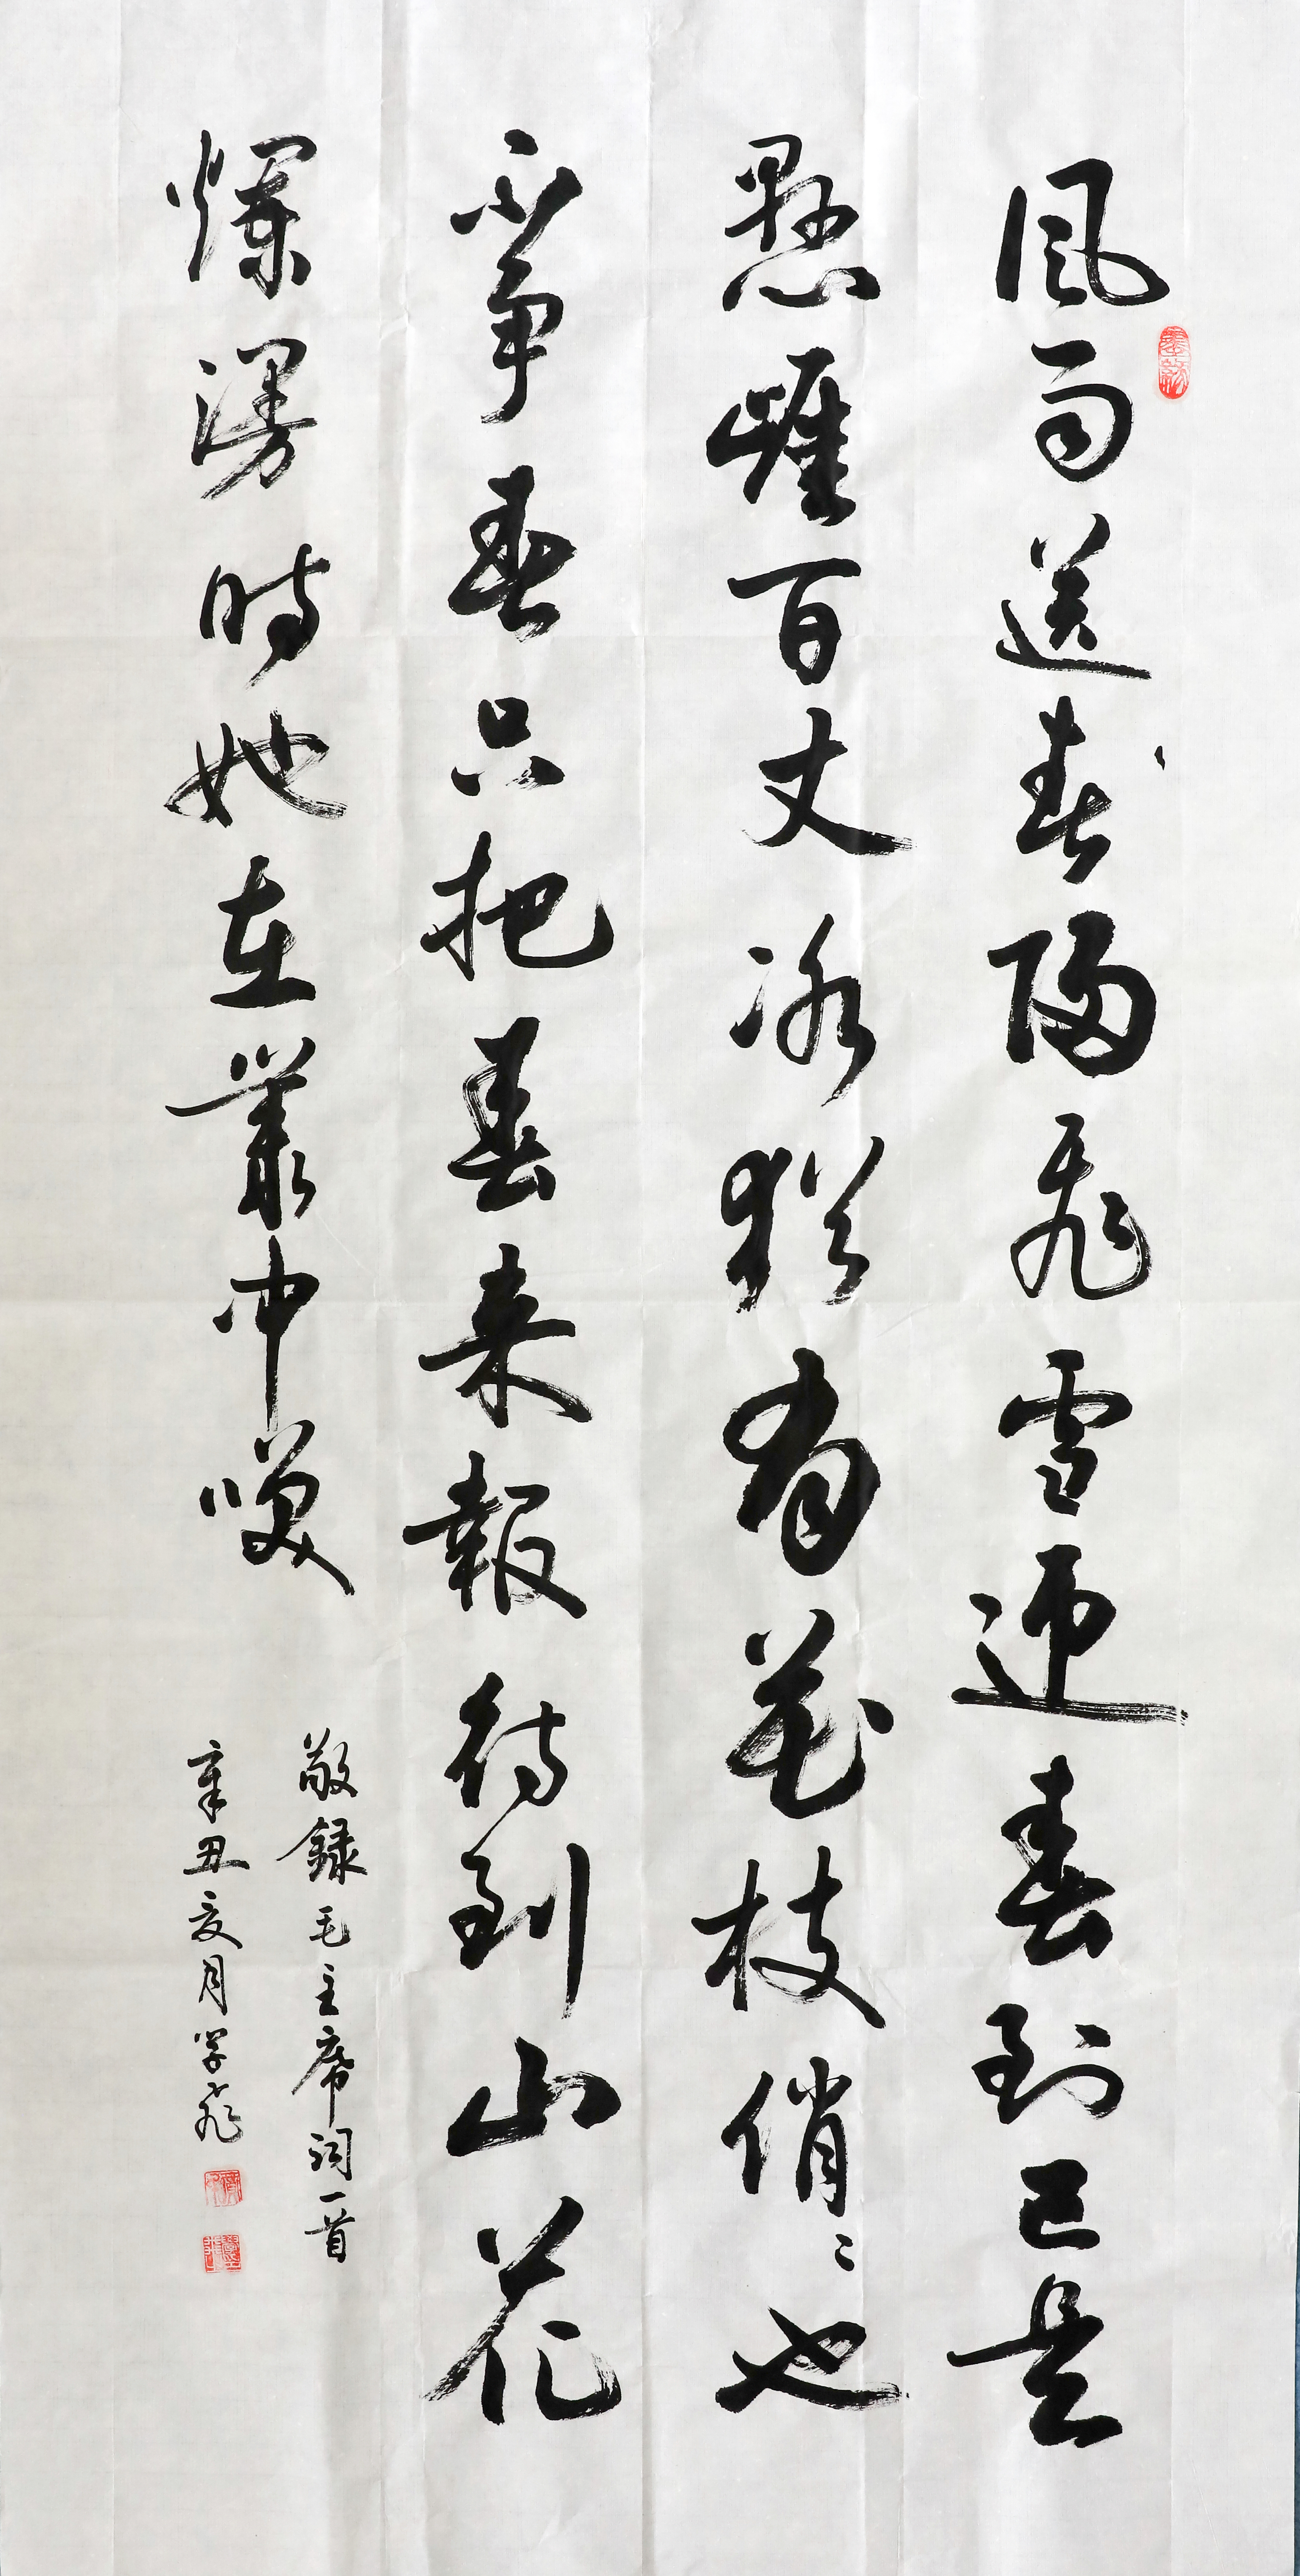 風雨送春歸飛雪迎春到已是
懸崖百丈冰猶有花枝俏〻也
不争春只把春来報待到山花
爛漫時她在叢中咲
敬録毛主席词一首
辛丑亥月学飛